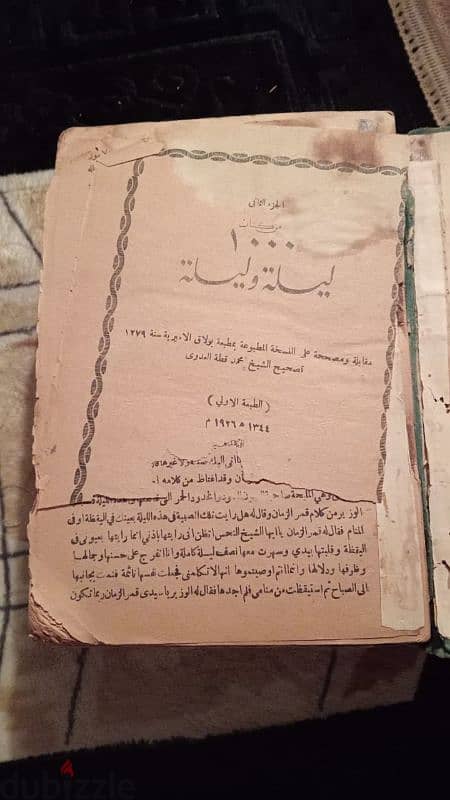 الجزء الثاني
من كتاب
١٠٠٠
ليلة وليلة
مقابلة ومصححة على النسخة المطبوعة بمطبعة بولاق الاميرية سنة ١٢٧٩
تصحيح الشيخ محمد قطة العدوى
( الطبعة الاولى )
١٣٤٤ ه ١٩٢٦ م
وقد اغتاظ من كلامه
الوزير من كلام قمر الزمان وقال له هل رايت تلك الصبية في هذه الليلة بعينك في اليقظة او في
المنام فقال له قمر الزمان ياايها الشيخ النحس اتظن انى رايتها باذنى انما رايتها بعيونى فى
اليقظة وقلبتها بيدى وسهرت معها نصف ليلة كاملة وانا اتفرج على حسنها وجمالها
وظرفها ودلالها وانما انتم اوصيتموها انها لا تكلمنى فجعلت نفسها نائمة فنمت بجانبها
الى الصباح ثم استيقظت من منامى فلم اجدها فقال له الوزير يا سيدى قمر الزمان ربما تكون
dubizzle